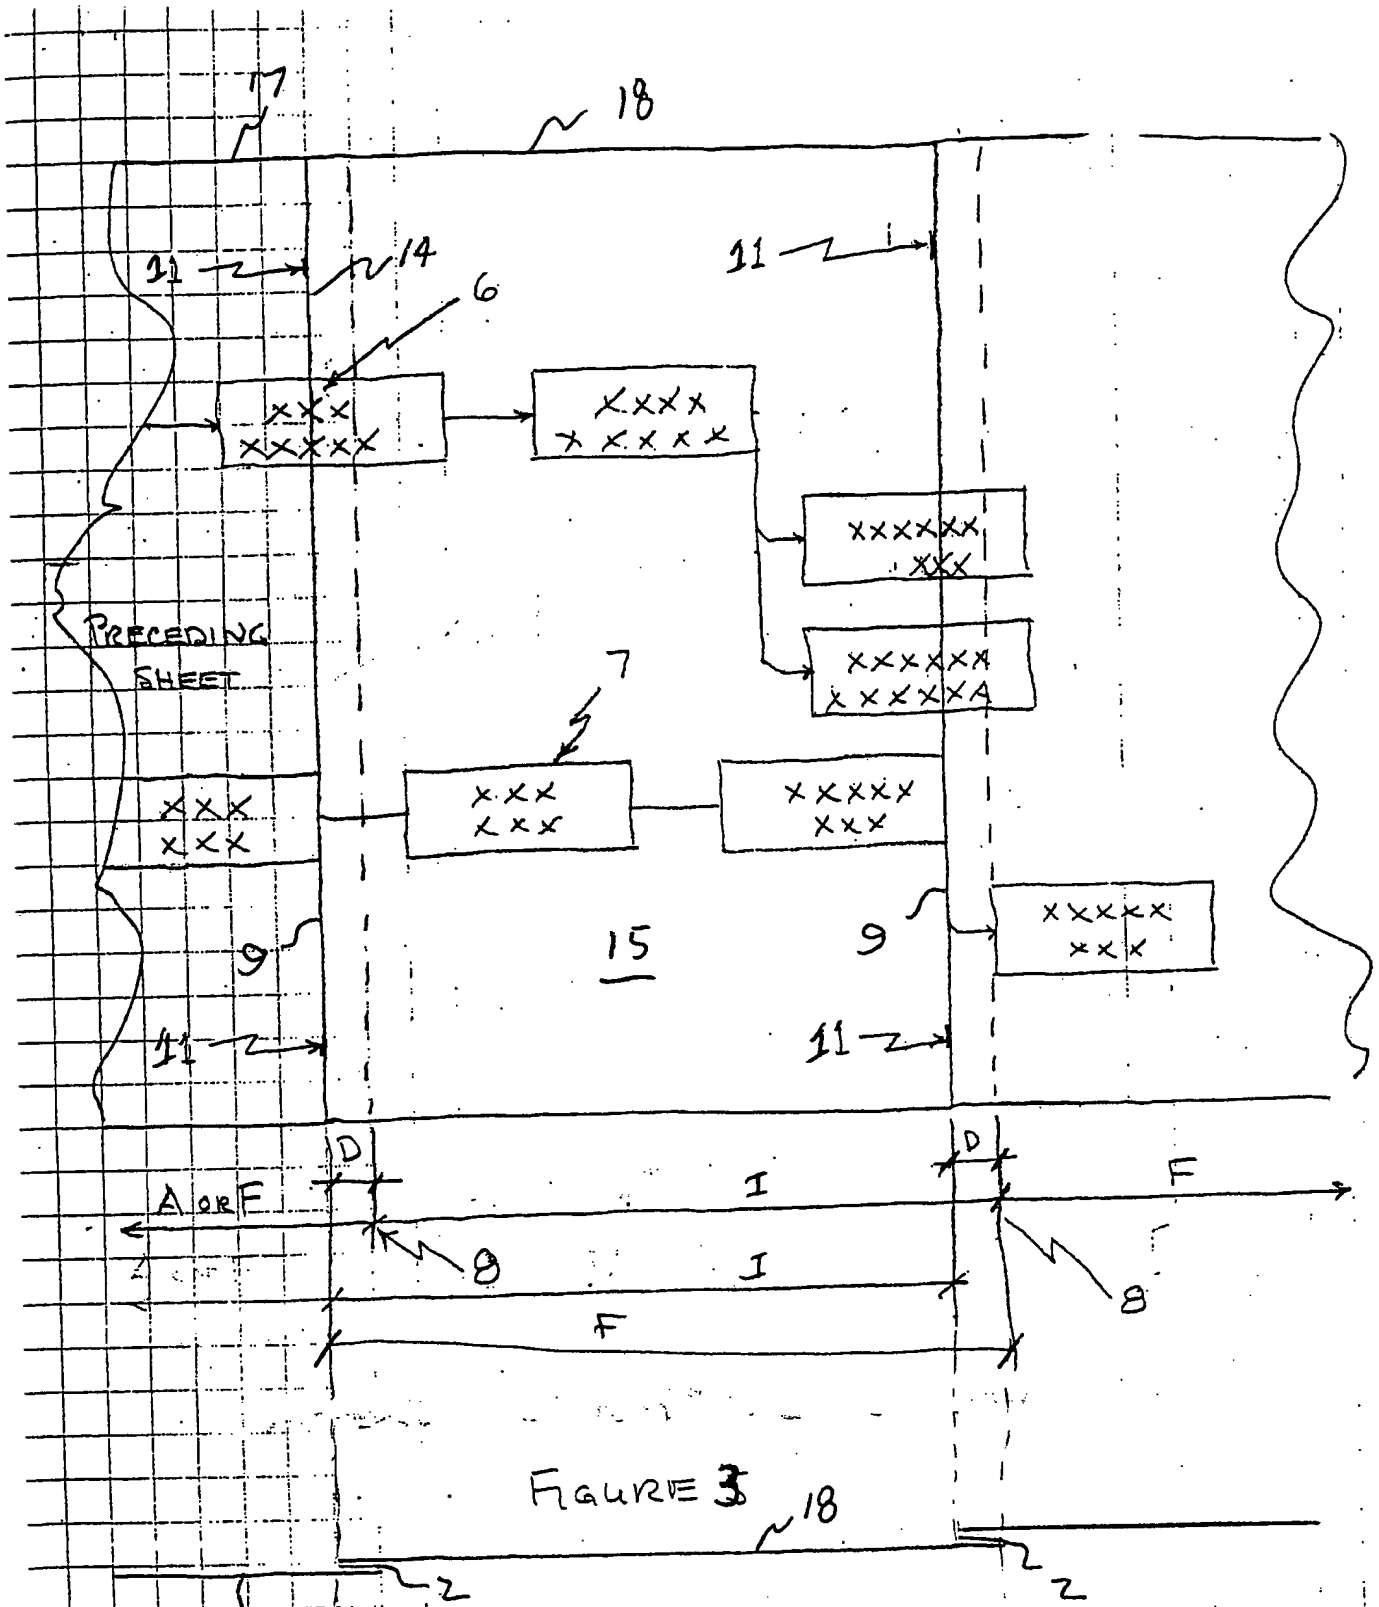 17
18
11
14
11
6
XXX
XXXXX
XXXX
XXXXX
XXXXXX
XXX
PRECEDING
SHEET
XXXXXX
XXXXXXA
7
XXX
XXX
XXX
XXX
XXXXX
XXX
9
15
9
XXXXX
XXX
11
11
D
D
A OR F
I
F
8
I
8
F
FIGURE 3
18
2
2